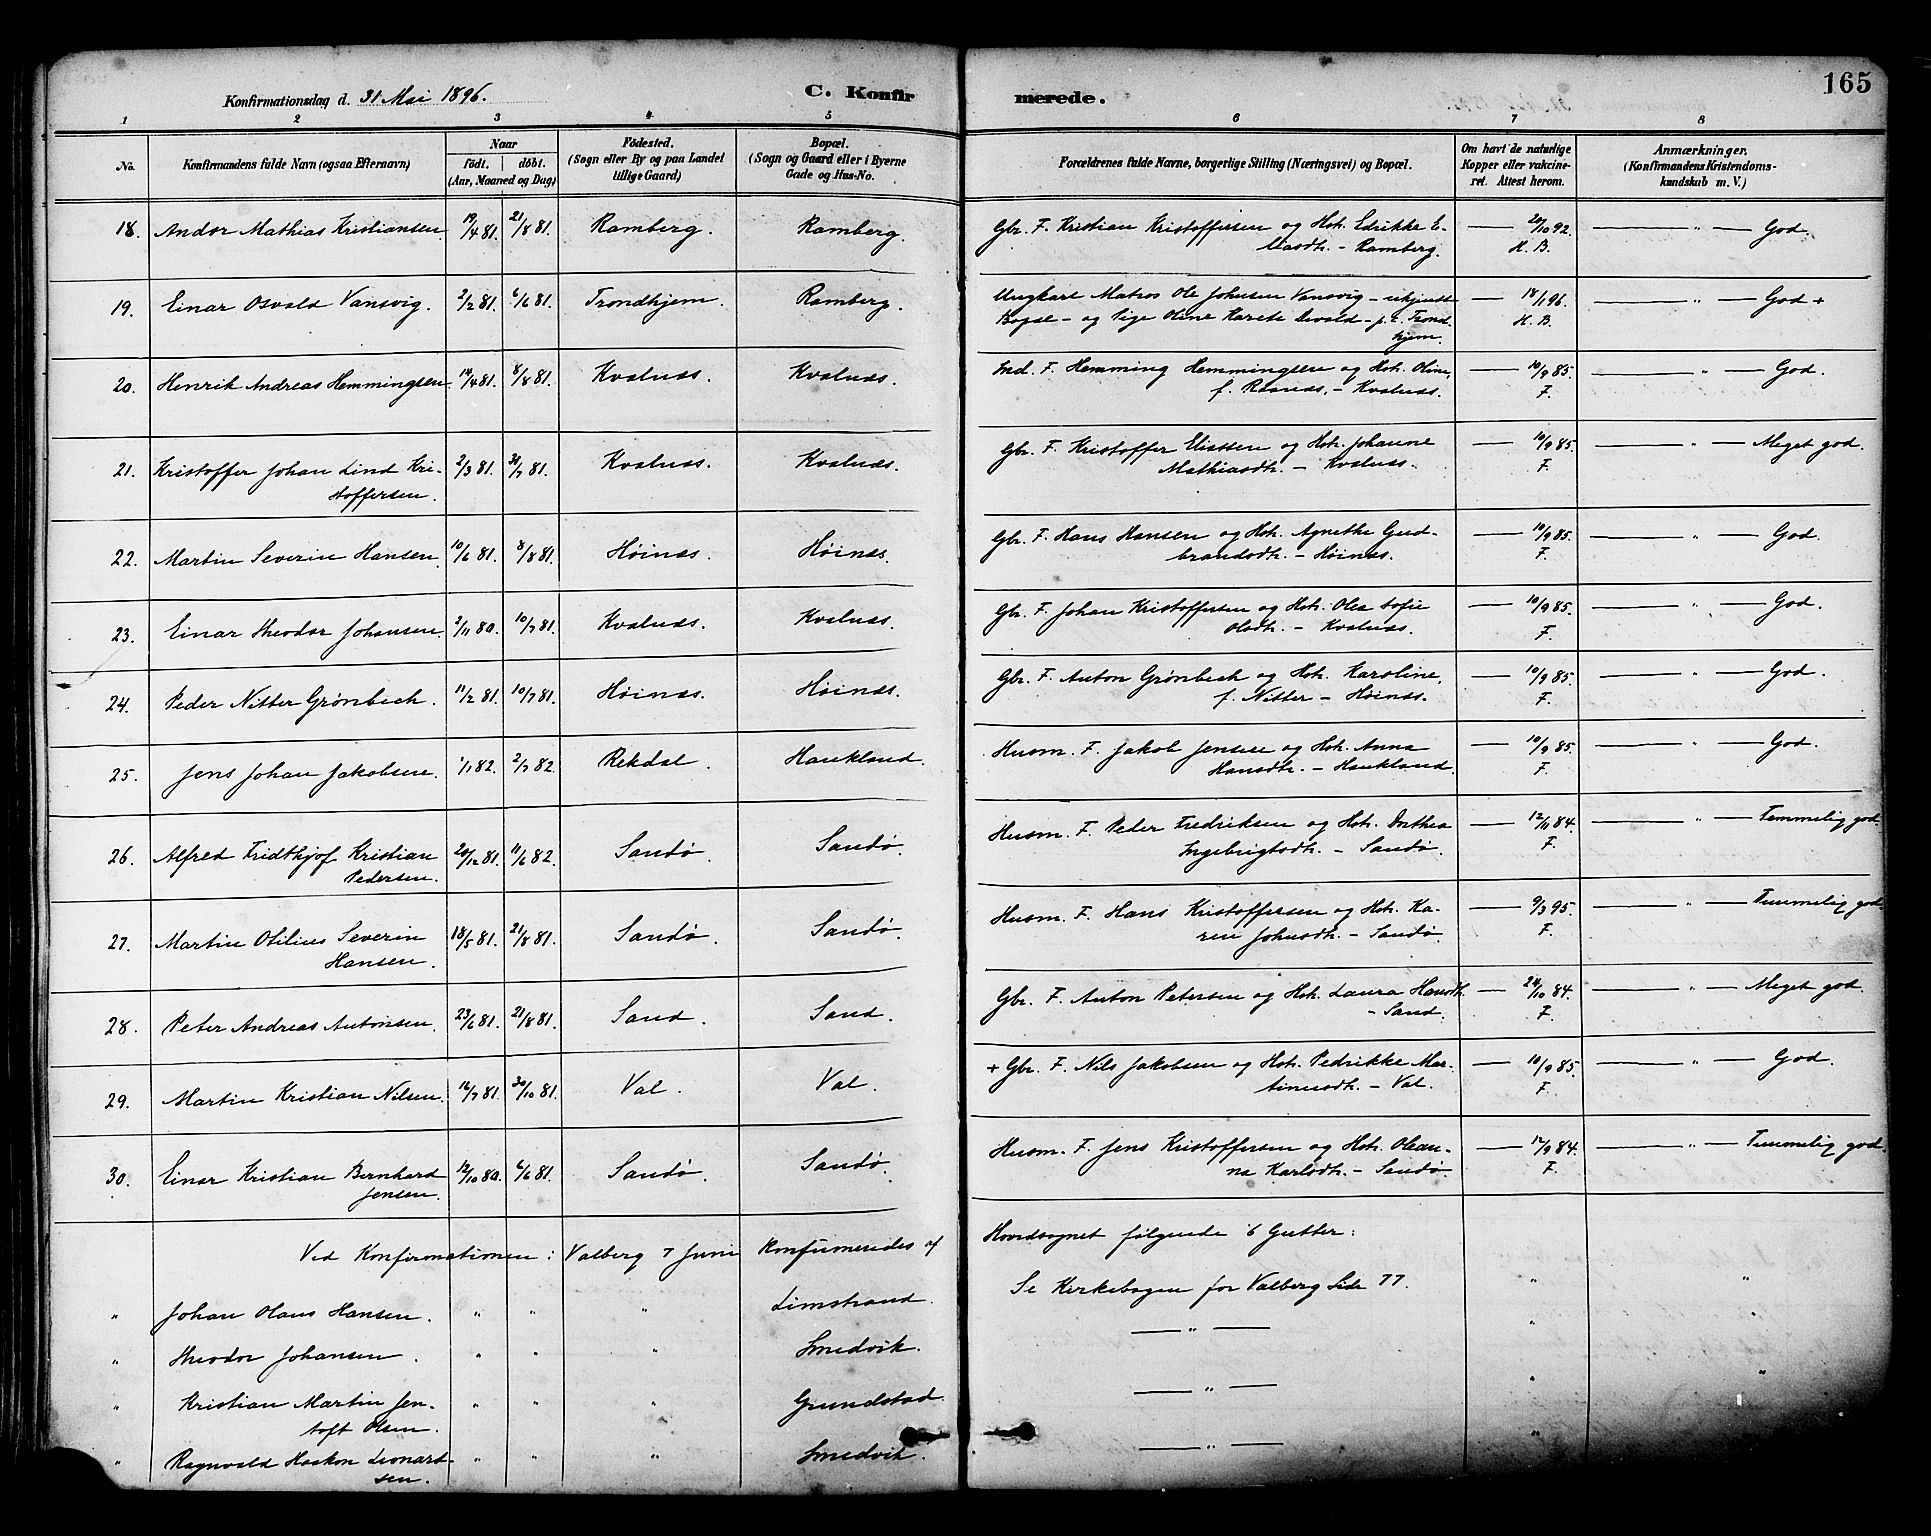 165
Konfirmationsdag d. 31 Mai 1896. C. Konfir merede.
1 2 3 4 5 6 7 8
No. Konfirmandens fulde Navn (ogsaa Efternavn) Naar födt. döbt. (Aar, Maaned og Dag) Födested. (Sogn eller By og paa Landet tillige Gaard) Bopæl. (Sogn og Gaard eller i Byerne Gade og Hus-No. Forældrenes fulde Navne, borgerlige Stilling (Næringsvei) og Bopæl. Om havt de naturlige Kopper eller vakcineret. Attest herom. Anmærkninger, (Konfirmandens Kristendomskundskab m. V.)
18. Andor Mathias Kristiansen 19/4 81. 21/8 81. Ramberg. Ramberg. Gbr. F. Kristian Kristoffersen og Hst. Edrikke E- — 20/10 92. — " — God.
liasdtr. - Ramberg. H. B.
19. Einar Osvald Vansvig. 2/2 81. 6/6 81. Trondhjem. Ramberg. Ungkarl Matros Ole Johnsen Vansvig - ukjendt — 18/1 96. — " — God +
Bopæl - og Pige Oline Karete Devold - p.t. Trond- H. B.
hjem.
20. Henrik Andreas Hemmingsen 14/4 81. 8/8 81. Kvalnæs. Kvalnæs. Ind. F. Hemming Hemmingsen og Hst. Oline, — 10/9 85. — " — God.
f. Raanæs. - Kvalnæs. F.
21. Kristoffer Johan Lind Kri- 2/3 81. 31/7 81. Kvalnæs. Kvalnæs. Gbr. F. Kristoffer Eliassen og Hst. Johanne — 10/9 85. — " — Meget god.
stoffersen. Mathiasdtr. - Kvalnæs. F.
22. Martin Severin Hansen 10/6 81. 8/8 81. Höinæs. Höinæs. Gbr. F. Hans Hansen og Hst. Agnethe Gud- — 10/9 85. — " — God.
brandsdtr. - Höinæs. F.
23. Einar Theodor Johansen. 2/11 80. 10/7 81. Kvalnæs. Kvalnæs. Gbr. F. Johan Kristoffersen og Hst. Olea Sofie — 10/9 85. — " — God.
Olsdtr. - Kvalnæs. F.
24. Peder Nitter Grönbech. 11/2 81. 10/7 81. Höinæs. Höinæs. Gbr. F. Anton Grönbech og Hst. Karoline, — 10/9 85. — " — God.
f. Nitter - Höinæs. F.
25. Jens Johan Jakobsen. 1/1 82. 2/7 82. Rekdal. Haukland. Husm. F. Jakob Jensen og Hst. Anna — 10/9 85. — " — God.
Hansdtr. - Haukland. F.
26. Alfred Fridthjof Kristian 20/12 81. 11/6 82. Sandö. Sandö. Husm. F. Peder Fredriksen og Hst. Dorthea — 12/11 84. — " — Temmelig god.
Pedersen. Ingebrigtsdtr. - Sandö. F.
27. Martin Otilius Severin 18/5 81. 21/8 81. Sandö. Sandö. Husm. F. Hans Kristoffersen og Hst. Ka- — 9/3 95. — " — Temmelig god.
Hansen. ren Johnsdtr. - Sandö. F.
28. Peter Andreas Antonsen. 23/6 81. 21/8 81. Sand. Sand. Gbr. F. Anton Petersen og Hst. Laura Hansdtr. — 24/10 84. — " — Meget god.
- Sand. F.
29. Martin Kristian Nilsen. 16/7 81. 30/10 81. Val. Val. + Gbr. F. Nils Jakobsen og Hst. Pedrikke Mar- — 10/9 85. — " — God.
tinusdtr. - Val. F.
30. Einar Kristian Bernhard 12/10 80. 6/6 81. Sandö. Sandö. Husm. F. Jens Kristoffersen og Hst. Olean- — 12/9 84. — " — Temmelig god.
Jensen. na Karlsdtr. - Sandö. F.
Ved Konfirmationen i Valberg 7 Juni konfirmeredes af Hovedsognet følgende 6 Gutter:
" Johan Olaus Hansen. " " " Limstrand. Se Kirkebogen for Valberg Side 77. " "
" Theodor Johansen. " " " Smedvik. — " — "
" Kristian Martin Jen- " " " Grundstad. — " — " "
toft Olsen.
" Ragnvald Haakon Leonard- " " " Smedvik. — " — "
sen.